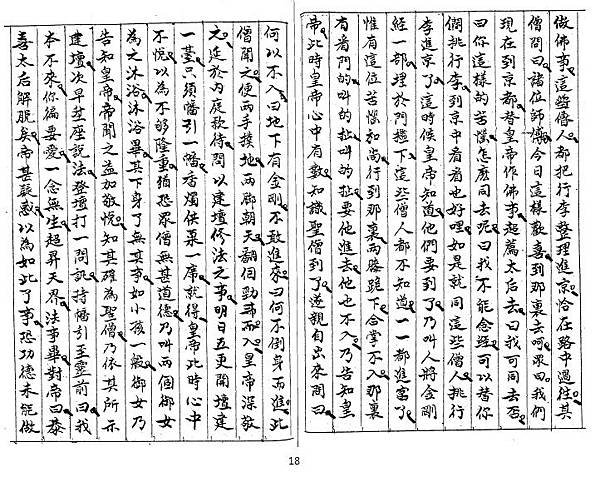 做佛事這些僧人都把行李整理進京恰在路中遇往其
僧問曰諸位師傅今日這樣歡喜到那裏去呢眾曰我們
現在到京都替皇帝作佛事超薦太后去曰我可同去否
曰你這樣的苦惱怎麼同去呢曰我不能念經可以替你
們挑行李到京中看看也好哩如是就同這些僧人挑行
李進京了這時候皇帝知道他們要到了乃叫人將金剛
經一部埋於門檻下這些僧人都不知道一一都進宮了
惟有這位苦惱和尚行到那裏兩膝跪下合掌不入那裏
有看門的叫的叫扯的扯要他進去他也不入乃告知皇
帝此時皇帝心中有數知識聖僧到了遂親自出來問曰
何以不入曰地下有金剛不敢進來曰何不倒身而進此
僧聞之便兩手撲地兩腳朝天翻個觔斗而入皇帝深敬
之延於內庭款待問以建壇修法之事明日五更開壇建
一臺只須幡引一幡香燭供菓一席就得皇帝此時心中
不悅以為不夠隆重猶恐眾僧無甚道德乃叫兩個御女
為之沐浴沐浴畢其下身了無其事如小孩一般御女乃
告知皇帝帝聞之益加敬悅知其確為聖僧乃依其所示
建壇次早登座說法登壇打一問訊持幡引至靈前曰我
本不來你偏要愛一念無生超昇天界法事畢對帝曰恭
喜太后解脫矣帝甚疑惑以為如此了事恐功德未能做
18